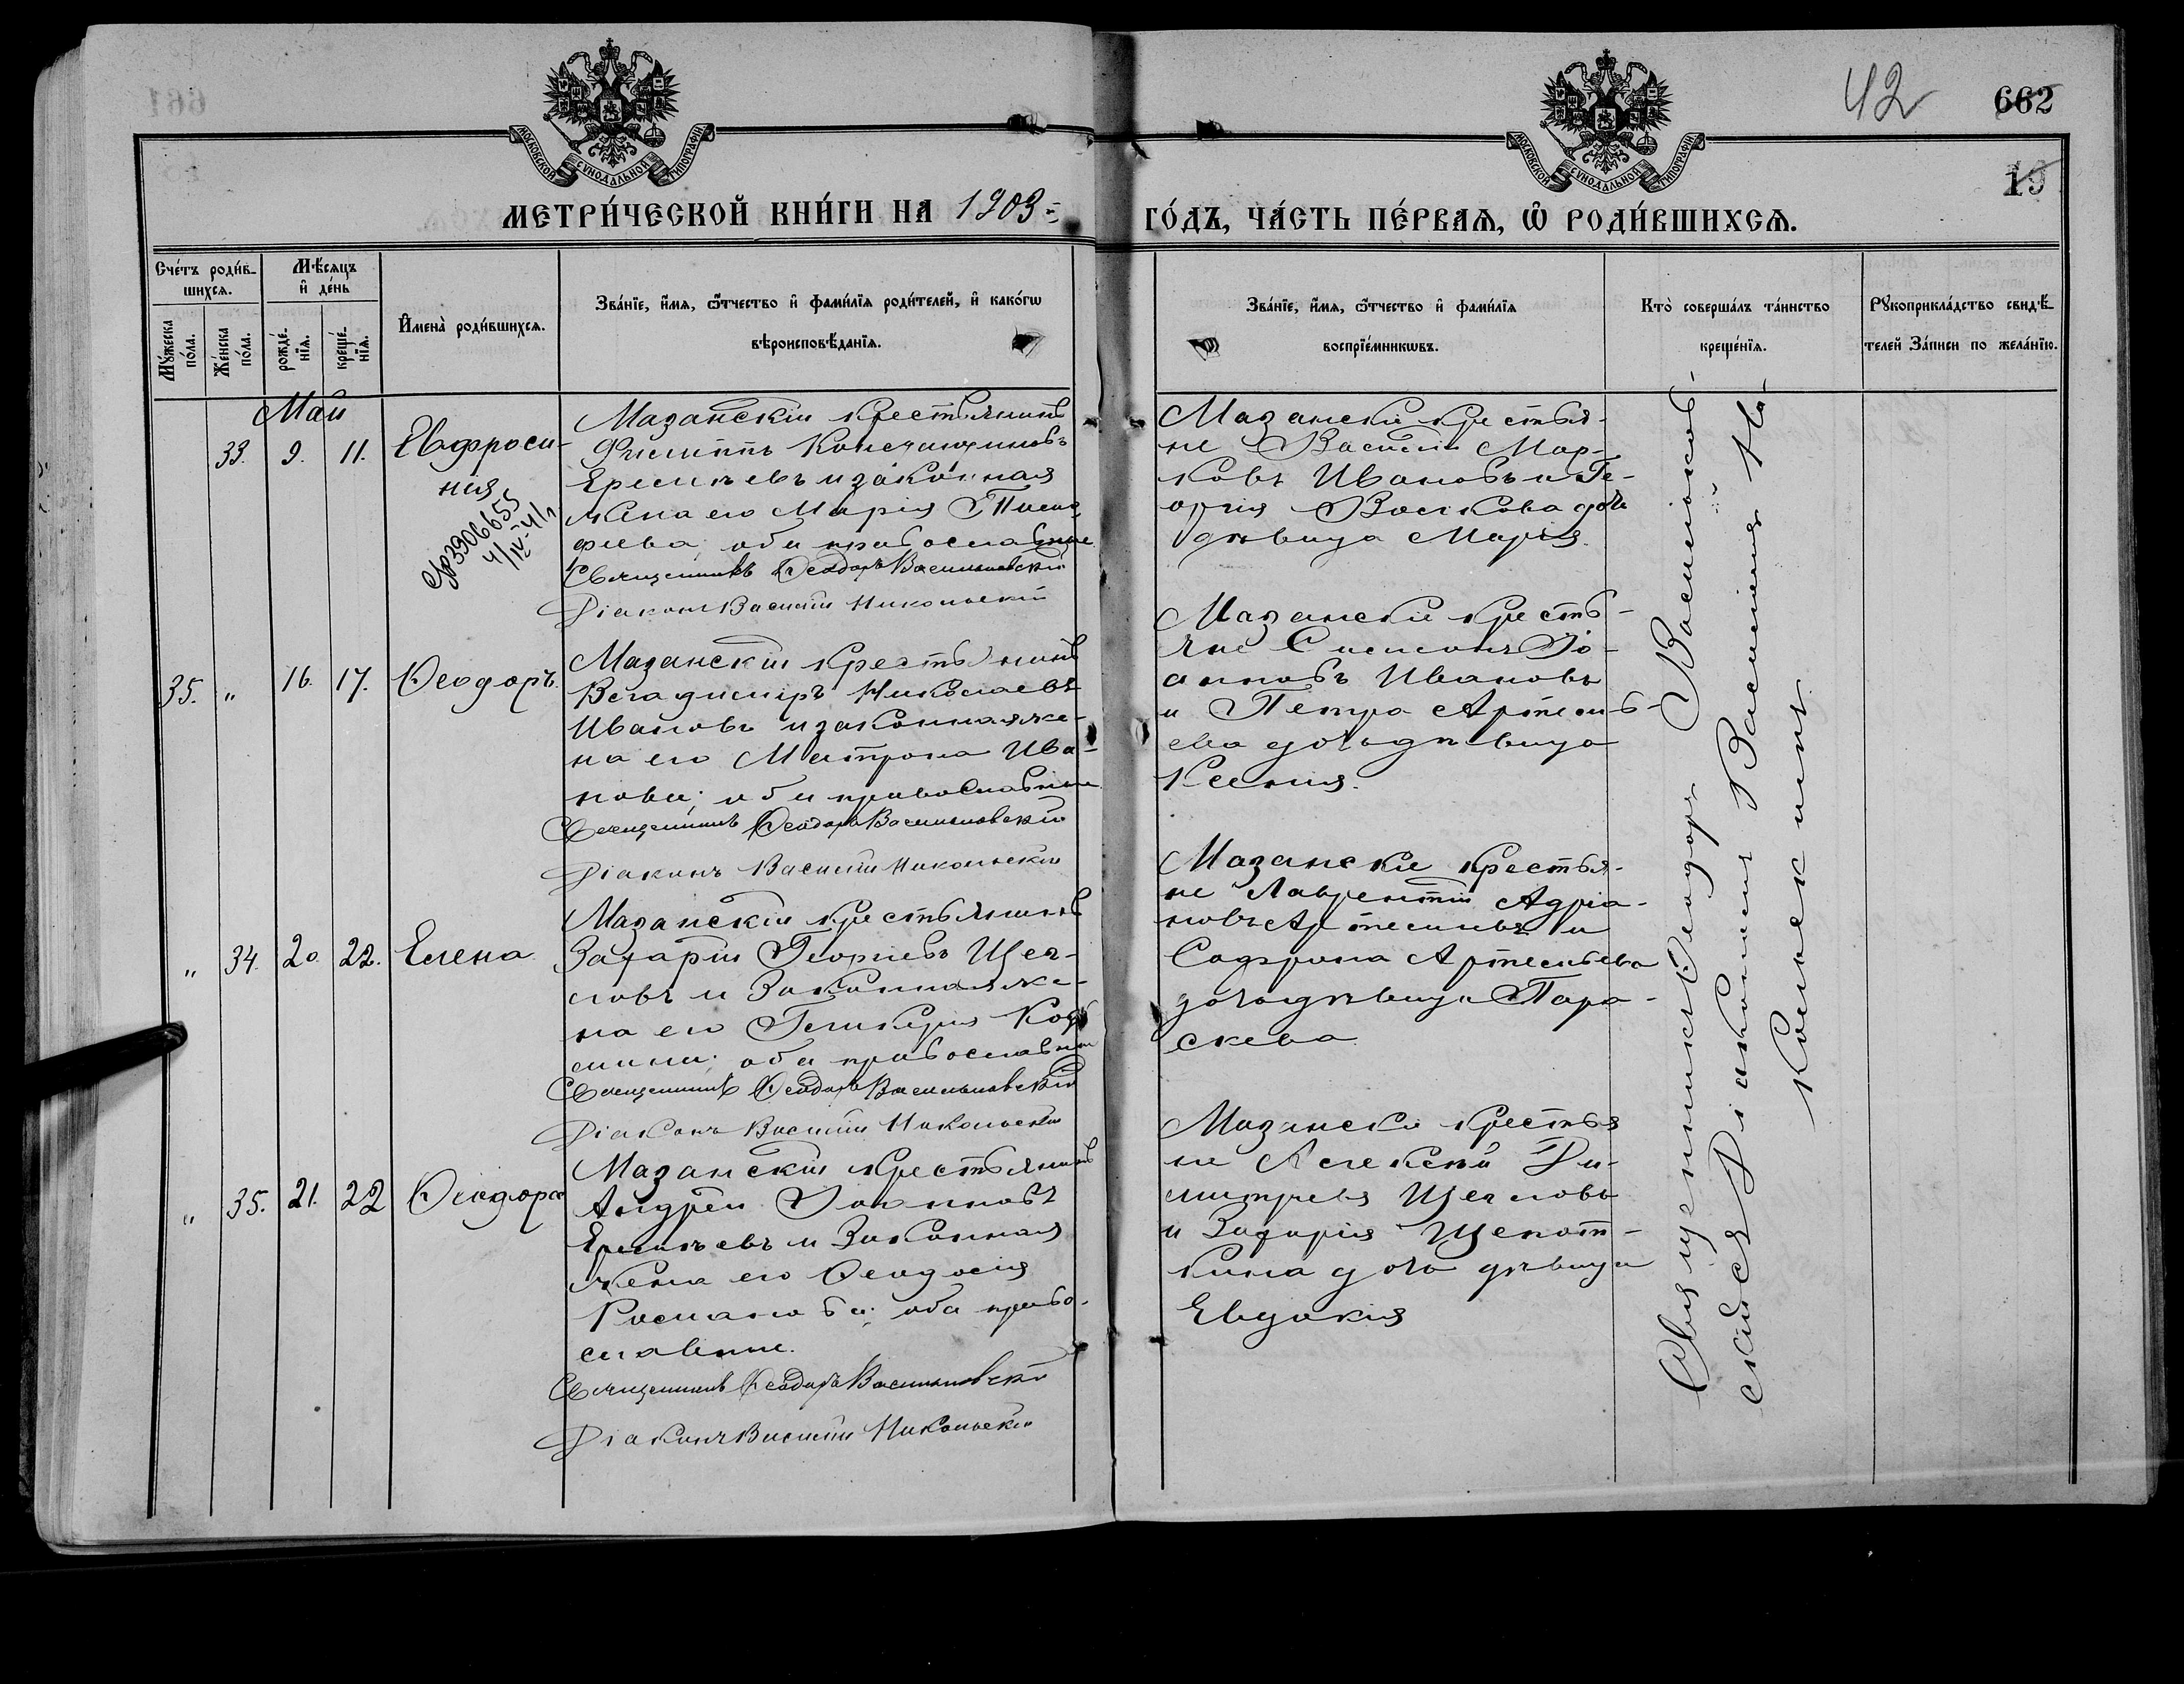 42
662
19
МОСКОВСКОЙ СУНОДАЛЬНОЙ ТИПОГРАФІИ
МОСКОВСКОЙ СУНОДАЛЬНОЙ ТИПОГРАФІИ
МЕТРИ́ЧЕСКОЙ КНИ́ГИ НА 1903
ГО́ДЪ, ЧА́СТЬ ПЕ́РВАѦ, Ѡ РОДИ́ВШИХСѦ.
Сче́тъ роди́в-
шихсѧ.
Мꙋ́жеска
по́ла.
Же́нска
по́ла.
Мѣ́сѧцъ
и҆ де́нь
рожде́-
нїѧ.
креще́-
нїѧ.
И҆мена̀ роди́вшихсѧ.
Зва́нїе, и҆́мѧ, ѻ҆́тчество и҆ фами́лїѧ роди́телей, и҆ како́гѡ
вѣроисповѣ́данїѧ.
Зва́нїе, и҆́мѧ, ѻ҆́тчество и҆ фами́лїѧ
воспрїе́мникѡвъ.
Кто̀ соверша́лъ та́инство
креще́нїѧ.
Рꙋкоприкла́дство свидѣ́-
телей За́писи по жела́нїю.
Май
33. 9. 11. Евфроси-
нія
Мазанскій крестьянинъ
Филиппъ Константиновъ
Еремѣевъ и законная
жена его Марія
оба православные
Священникъ Ѳеодоръ Васильковскій
Діаконъ Василій Никольскій
Мазанскіе крестья-
не Василій Мар-
ковъ Ивановъ и Ге-
оргія Волкова дочь
дѣвица Марія.
35. " 16. 17. Ѳеодоръ.
Мазанскій крестьянинъ
Владиміръ Николаевъ
Ивановъ и законная же-
на его Матрона Ива-
нова; оба православные
Священникъ Ѳеодоръ Васильковскій
Діаконъ Василій Никольскій
Мазанскіе кресть-
яне Симеонъ Іо-
анновъ Ивановъ
и Петра Артемь-
ева дочь дѣвица
Ксенія.
" 34. 20. 22. Елена
Мазанскій крестьянинъ
Захарій Георгіевъ Щег-
ловъ и законная же-
на его Гликерія Козь
мина; оба православные
Священникъ Ѳеодоръ Васильковскій
Діаконъ Василій Никольскій
Мазанскіе крестья-
не Лаврентій Адріа-
новъ Артемьевъ и
Софрона Артемьева
дочь дѣвица Пара-
скева
" 35. 21. 22 Ѳеодора
Мазанскій крестьянинъ
Андрей Іоанновъ
Еремѣевъ и законная
жена его Ѳеодосія
Романова; оба право-
славные.
Священникъ Ѳеодоръ Васильковскій
Діаконъ Василій Никольскій
Мазанскіе крестья
не Алексѣй Ди-
митріевъ Щегловъ
и Захарія Щекот-
кина дочь дѣвица
Евдокія
Священникъ Ѳеодоръ Васильков-
скій съ Діакономъ Василіемъ Ни-
кольскимъ